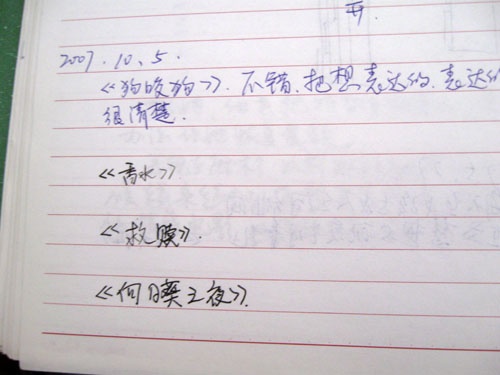 2007.10.5.
《狗咬狗》. 不错. 把想表达的. 表达的
很清楚.
《香水》
《救赎》.
《向日葵之夜》.